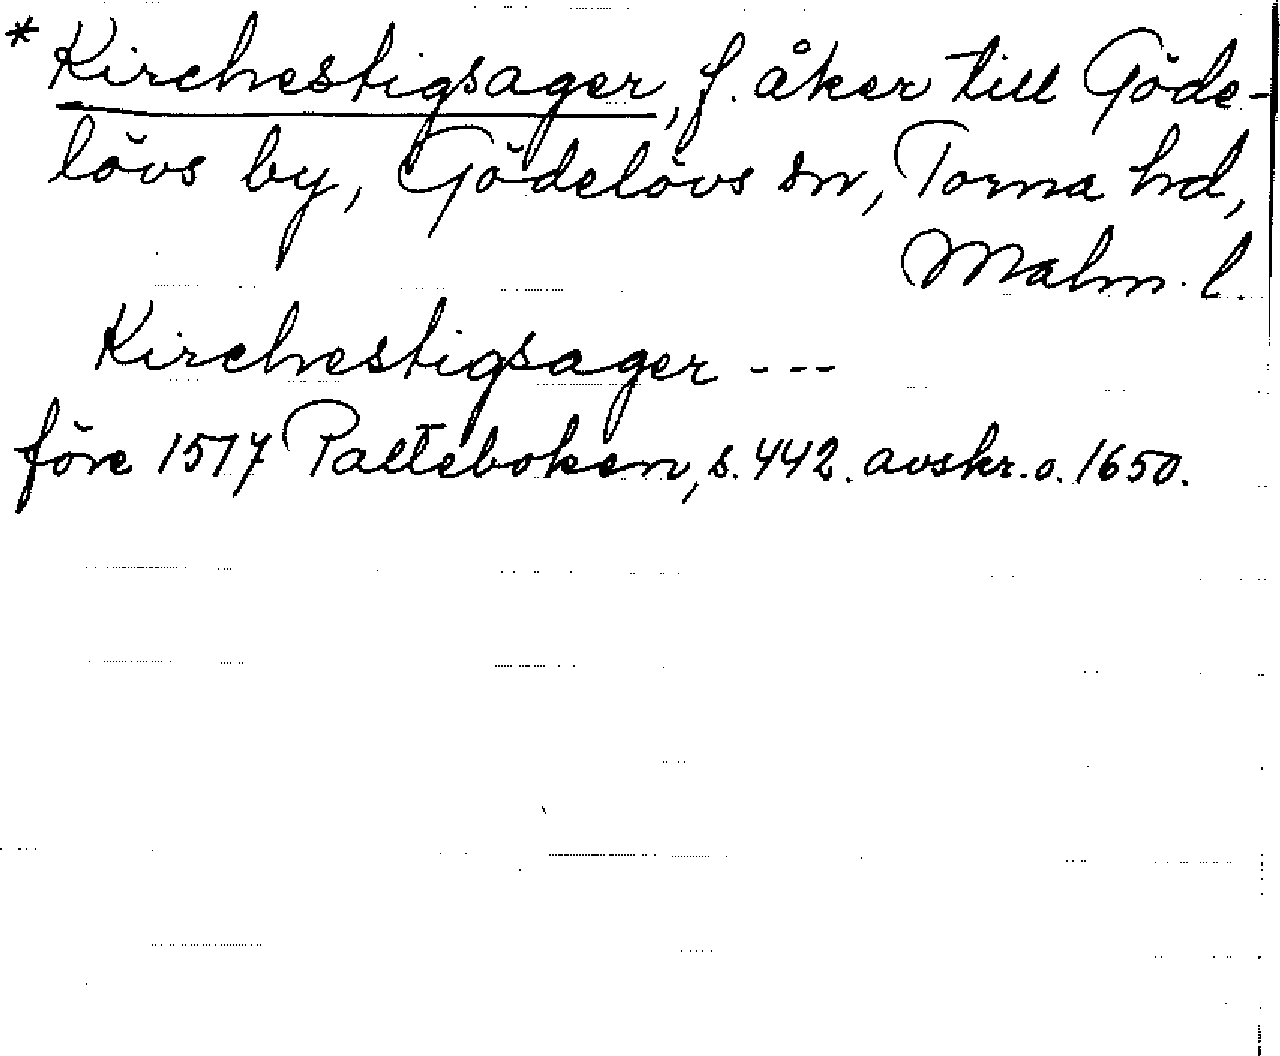 * Kirchestigsager, f. åker till Göde-
lövs by, Gödelövs sn, Torna hd,
Malm. l.
Kirchestigsager ---
före 1517 Palteboken, s. 442. avskr. o. 1650.